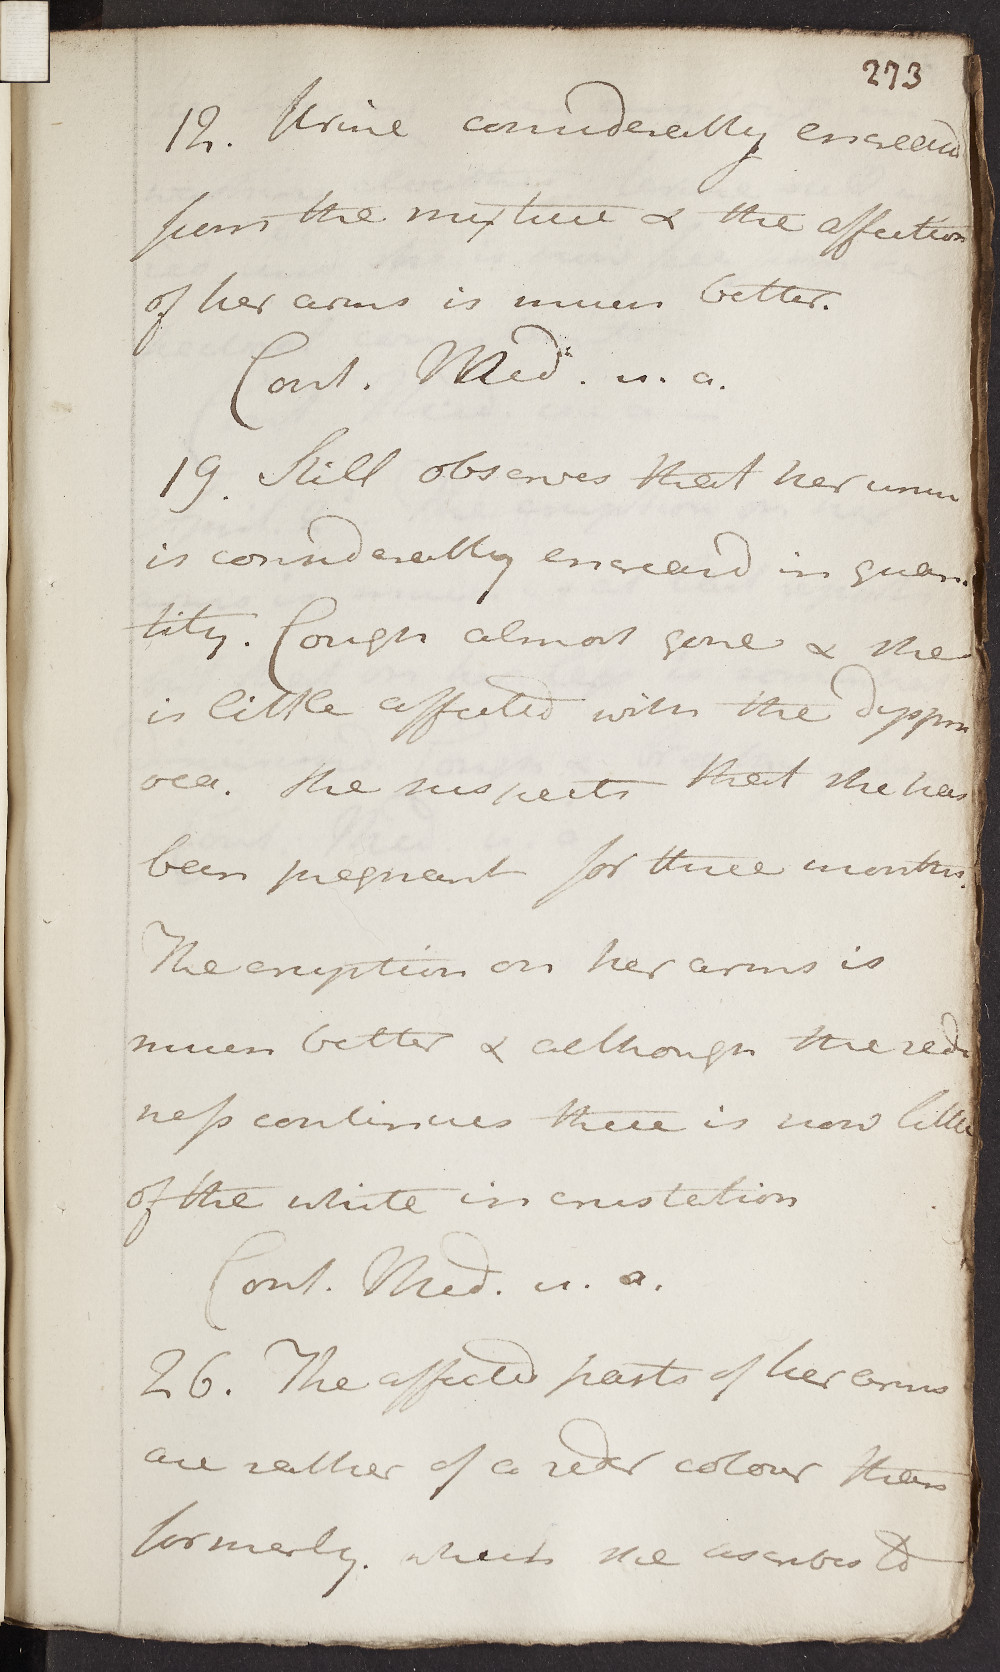 273
12. Urine considerably encreasd
from the mixture & the affection
of her arms is much better.
Cont. Med. u. a.
19. Still observes that her urine
is considerably encreasd in quan-
tity. Cough almost gone & she
is little affected with the dyspn
oea. She suspects that she has
been pregnant for three months.
The eruption on her arms is
much better & although the red-
ness continues there is now little
of the white incrustation
Cont. Med. u. a.
26. The affected parts of her arms
are rather of a reder colour than
formerly. which she ascribes to